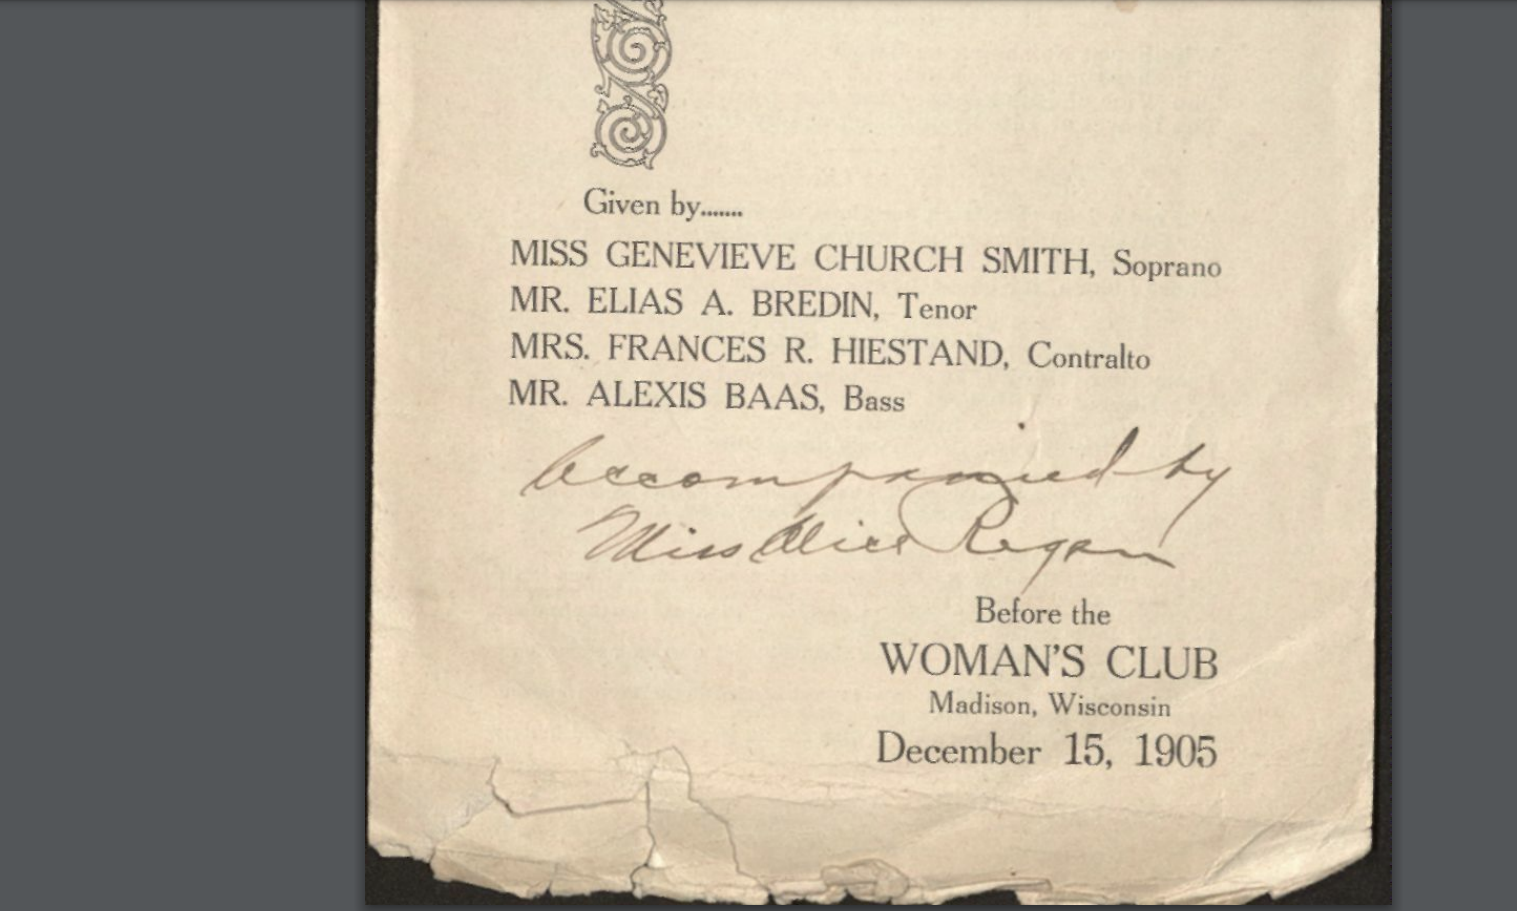 Given by.......
MISS GENEVIEVE CHURCH SMITH, Soprano
MR. ELIAS A. BREDIN, Tenor
MRS. FRANCES R. HIESTAND, Contralto
MR. ALEXIS BAAS, Bass
Accompanied by
Miss Alice Regan
Before the
WOMAN'S CLUB
Madison, Wisconsin
December 15, 1905